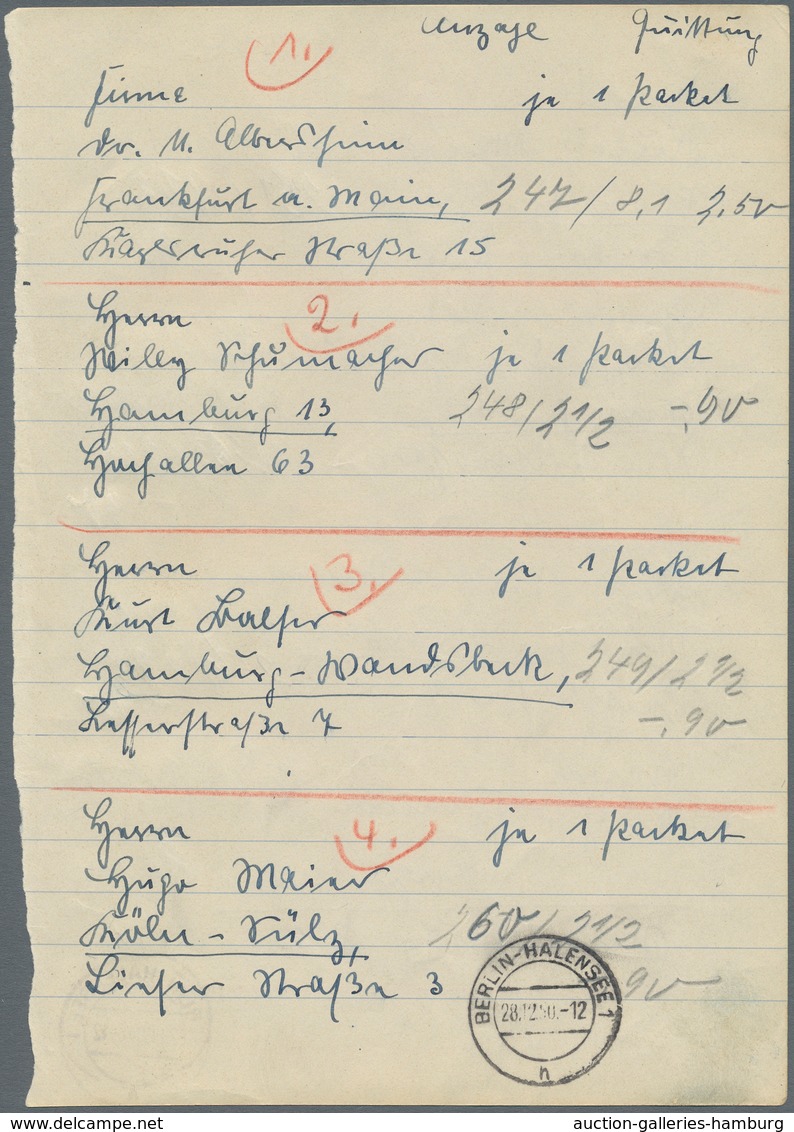 Anzage Quittung
1.
Firma je 1 Packet
Dr. M. Albersheim
Frankfurt a. Main, 247/8,1 2,50
Karlsruher Straße 15
2.
Herrn
Willy Schumacher je 1 Packet
Hamburg 13, 248/21/2 -,90
Hochallee 63
Herrn 3. je 1 Packet
Kurt Balser
Hamburg-Wandsbeck, 249/21/2
Lesserstraße 7 -,90
Herrn 4. je 1 Packet
Hugo Maier
Köln-Sülz, 260/21/2
Lieser Straße 3 90
BERLIN-HALENSEE 1
28.12.50.-12
n
auction-galleries-hamburg